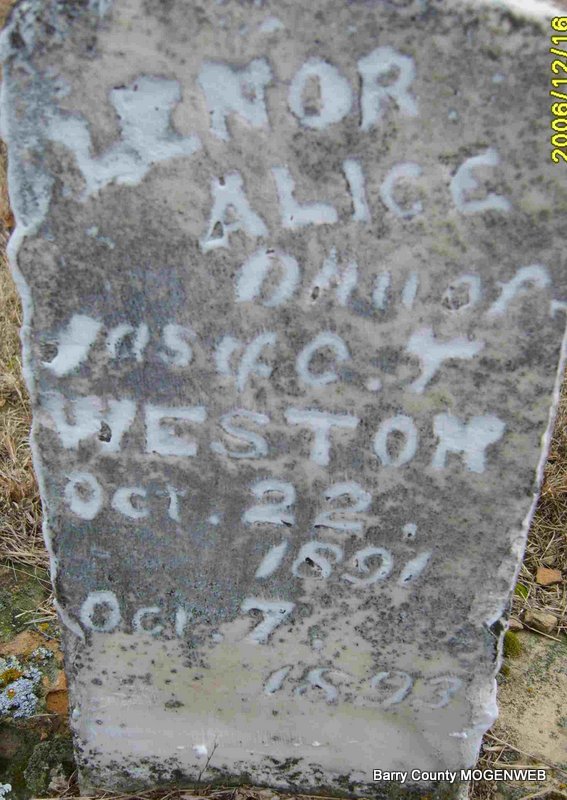 LENOR
ALICE
OF
JAS & O. Y
WESTON
OCT. 22,
1891
OCT. 7.
1893
2006/12/16
Barry County MOGENWEB